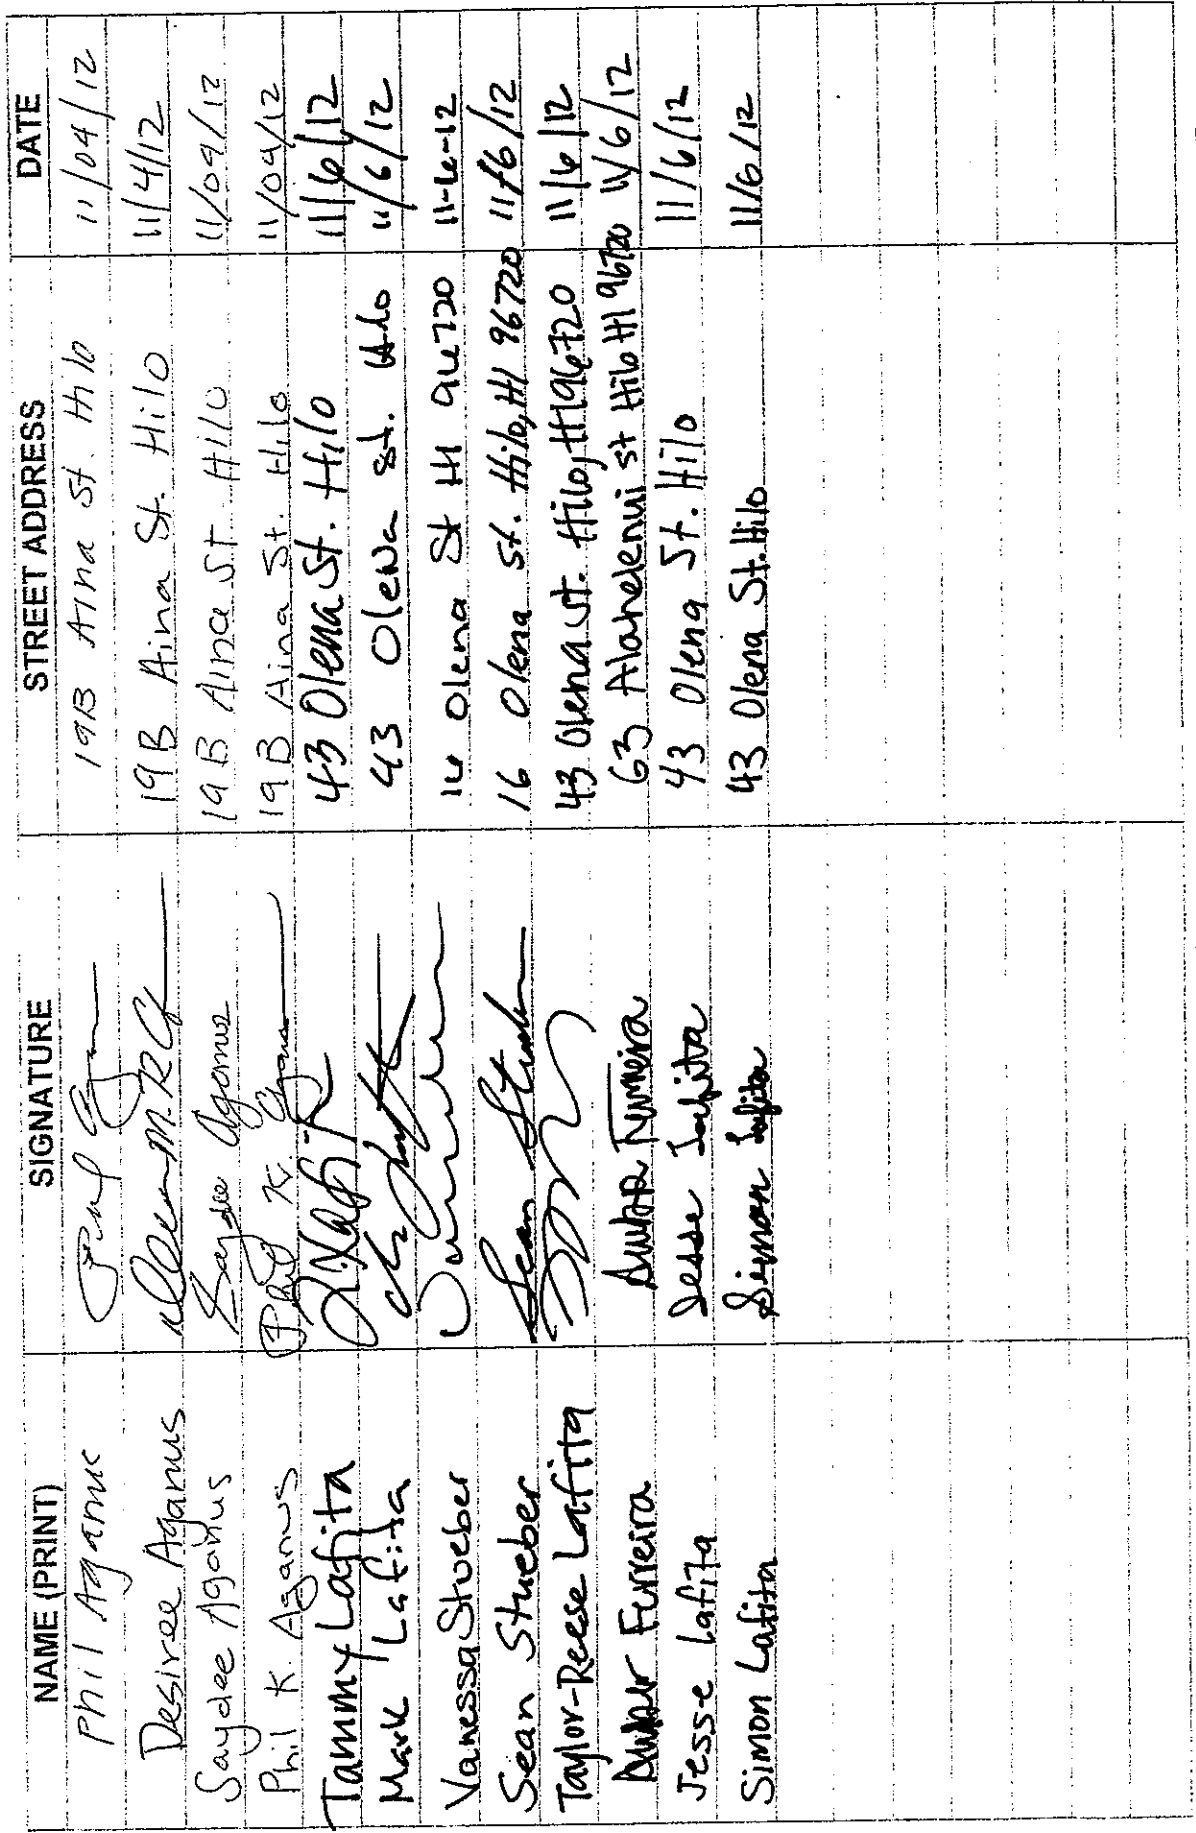 NAME (PRINT) SIGNATURE STREET ADDRESS DATE
Phil Aganus Phil 19B Aina St. Hilo 11/04/12
Desiree Aganus 19B Aina St. Hilo 11/4/12
Saydee Aganus Saydee Aganus 19B Aina St. Hilo 11/04/12
Phil K. Aganus Phil K. Aganus 19B Aina St. Hilo 11/04/12
Tammy Lafita 43 Olena St. Hilo 11/6/12
Mark Lafita 43 Olena St. Hilo 11/6/12
Vanessa Stueber 16 Olena St HI 96720 11-6-12
Sean Stueber Sean Stueber 16 Olena St. Hilo, HI 96720 11/6/12
Taylor-Reese Lafita 43 Olena St. Hilo, HI 96720 11/6/12
Ferreira Ferreira 63 Alahelenui St Hilo HI 96720 11/6/12
Jesse Lafita Jesse Lafita 43 Olena St. Hilo 11/6/12
Simon Lafita Simon Lafita 43 Olena St. Hilo 11/6/12